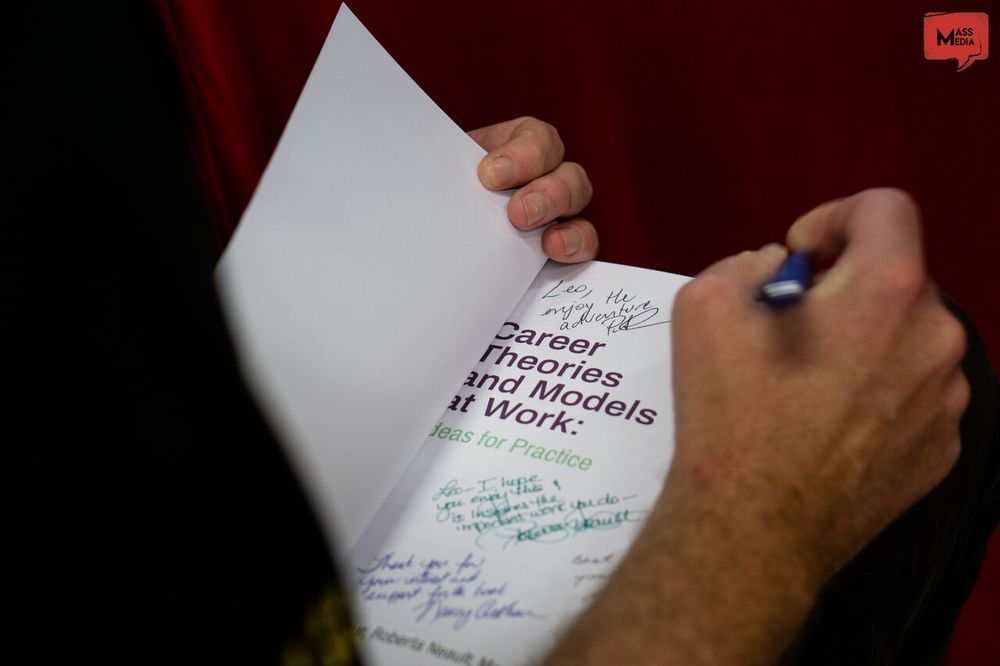 MASS
MEDIA
Leo,
enjoy the
adventure
Career
Theories
and Models
at Work:
deas for Practice
Leo- I hope
you enjoy this!
important work you do-
Roberta Neault
Thank you for
your interest and
support for the book.
Nancy Arthur
Roberta Neault,